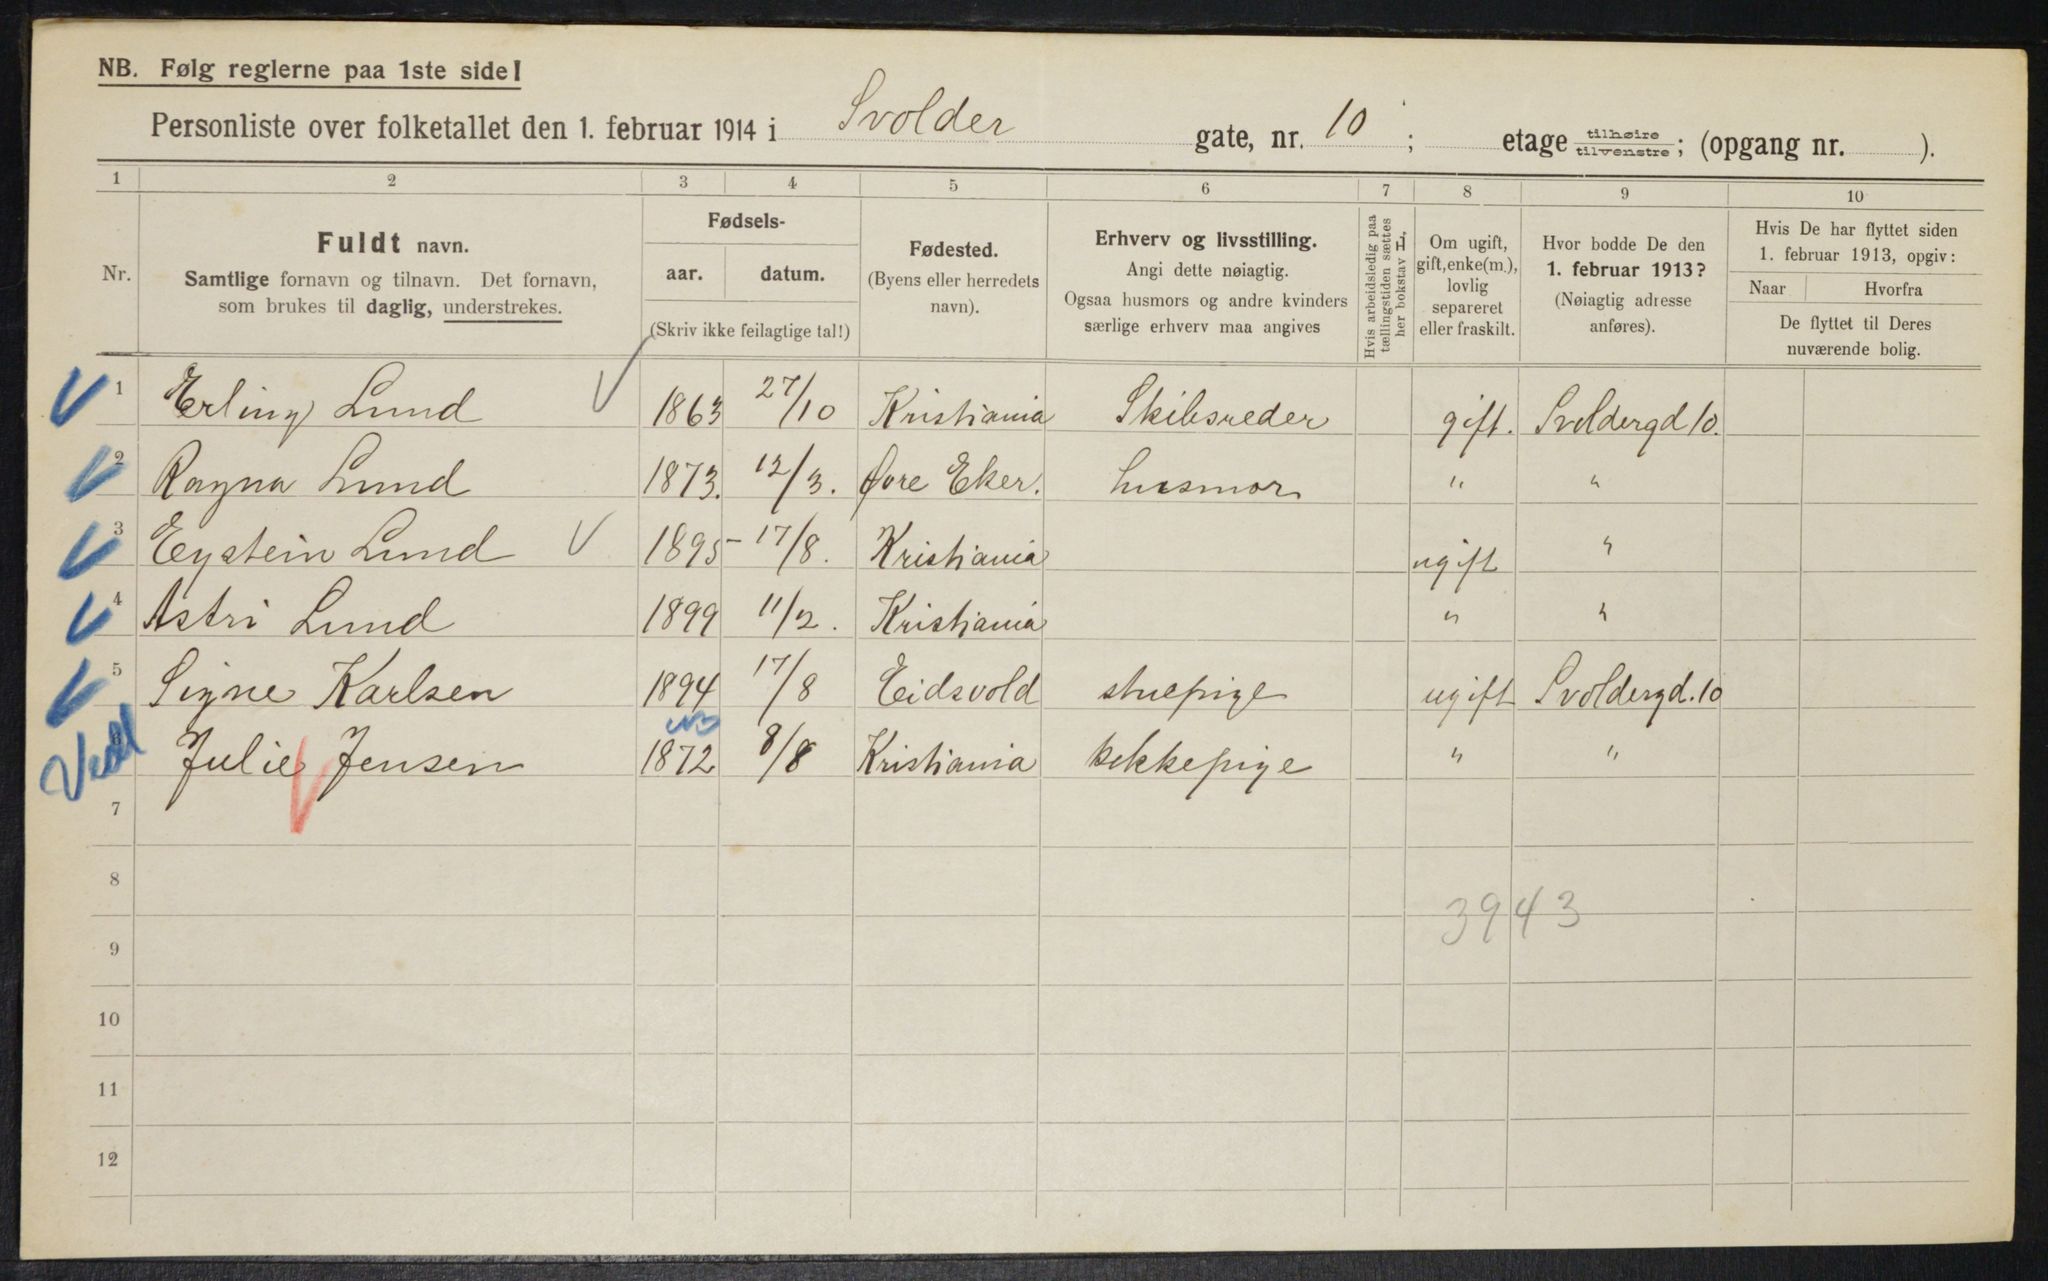 NB. Følg reglerne paa 1ste side!
Personliste over folketallet den 1. februar 1914 i Svolder gate, nr. 10 ; etage tilhøire tilvenstre ; (opgang nr. ).
1 2 3 4 5 6 7 8 9 10
Nr.
Fuldt navn.
Samtlige fornavn og tilnavn. Det fornavn,
som brukes til daglig, understrekes.
Fødsels-
aar. datum.
(Skriv ikke feilagtige tal!)
Fødested.
(Byens eller herredets
navn).
Erhverv og livsstilling.
Angi dette nøiagtig.
Ogsaa husmors og andre kvinders
særlige erhverv maa angives
Hvis arbeidsledig paa
tællingstiden sættes
her bokstav L.
Om ugift,
gift, enke(m.),
lovlig
separeret
eller fraskilt.
Hvor bodde De den
1. februar 1913?
(Nøiagtig adresse
anføres).
Hvis De har flyttet siden
1. februar 1913, opgiv:
Naar Hvorfra
De flyttet til Deres
nuværende bolig.
1 Erling Lund 1863 27/10 Kristiania Skibsreder gift. Svoldergd 10.
2 Ragna Lund 1873. 12/3. Øvre Eker. husmor " "
3 Eystein Lund 1895 - 17/8. Kristiania ugift "
4 Astri Lund 1899 11/2. Kristiania " "
5 Signe Karlsen 1894 17/8 Eidsvold stuepige ugift Svoldergd. 10
NB
6 Julie Jensen 1872 8/8 Kristiania kokkepige " "
7
8
3943
9
10
11
12